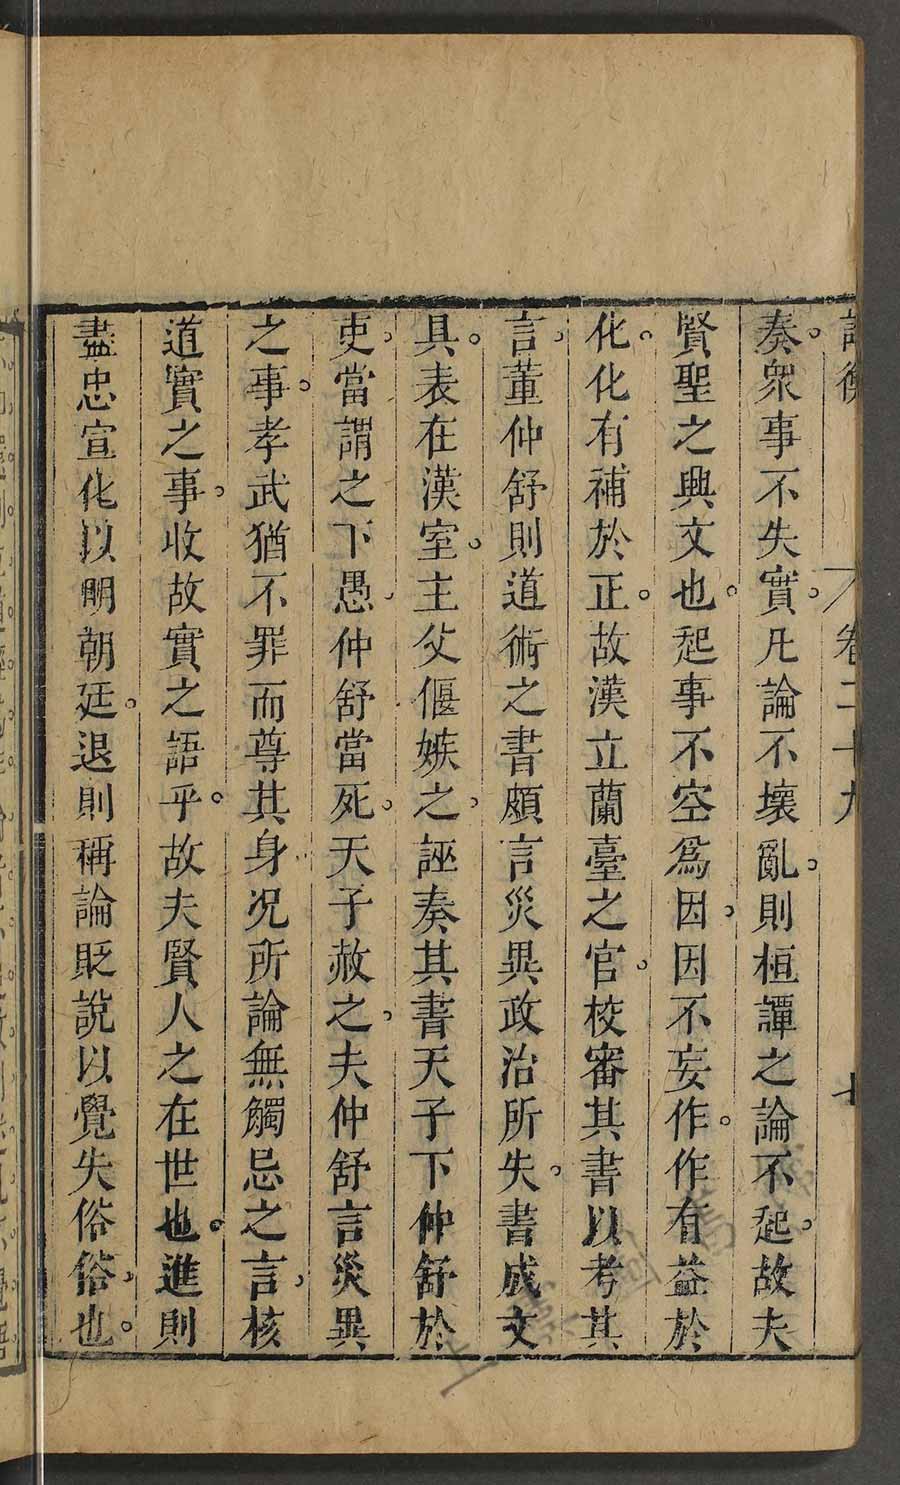 論衡 卷二十九 七
奏。衆事不失實。凡論不壞亂。則桓譚之論不起。故夫
賢聖之興文也。起事不空爲因。因不妄作。作有益於
化。化有補於正。故漢立蘭臺之官。校審其書以考其
言。董仲舒則道術之書頗言災異政治所失。書成文
具。表在漢室。主父偃嫉之。誣奏其書天子下仲舒於
吏。當謂之下愚。仲舒當死。天子赦之。夫仲舒言災異
之事。孝武猶不罪而尊其身况所論無觸忌之言。核
道實之事。收故實之語乎。故夫賢人之在世也。進則
盡忠宣化以明朝廷。退則稱論貶說以覺失俗。俗也。